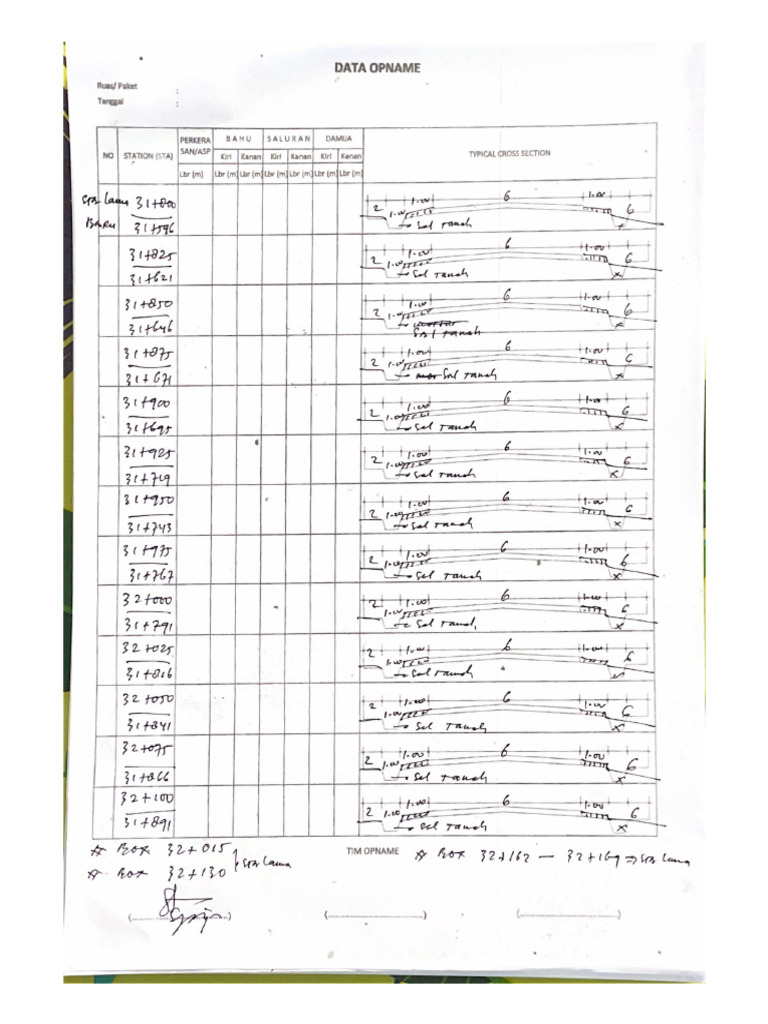 DATA OPNAME
Ruas/ Paket :
Tanggal :
NO STATION (STA) PERKERA SAN/ASP BAHU SALURAN DAMIJA TYPICAL CROSS SECTION
Kiri Kanan Kiri Kanan Kiri Kanan
Lbr (m) Lbr (m) Lbr (m) Lbr (m) Lbr (m) Lbr (m) Lbr (m)
Sta Lama 31+800 2 1.00 1.00 6 1.00 6
Baru 31+596 Sal Tanah
31+825 2 1.00 1.00 6 1.00 6
31+621 Sal Tanah
31+850 2 1.00 1.00 6 1.00 6
31+646 Sal Tanah
31+875 2 1.00 1.00 6 1.00 6
31+671 Sal Tanah
31+900 2 1.00 1.00 6 1.00 6
31+695 Sal Tanah
31+925 2 1.00 1.00 6 1.00 6
31+719 Sal Tanah
31+950 2 1.00 1.00 6 1.00 6
31+743 Sal Tanah
31+975 2 1.00 1.00 6 1.00 6
31+767 Sal Tanah
32+000 2 1.00 1.00 6 1.00 6
31+791 Sal Tanah
32+025 2 1.00 1.00 6 1.00 6
31+816 Sal Tanah
32+050 2 1.00 1.00 6 1.00 6
31+841 Sal Tanah
32+075 2 1.00 1.00 6 1.00 6
31+866 Sal Tanah
32+100 2 1.00 1.00 6 1.00 6
31+891 Sal Tanah
Box 32+015
Box 32+130 Sta Lama
TIM OPNAME
Box 32+162 — 32+169 ⇒ Sta Lama
(..........) (..........) (..........)